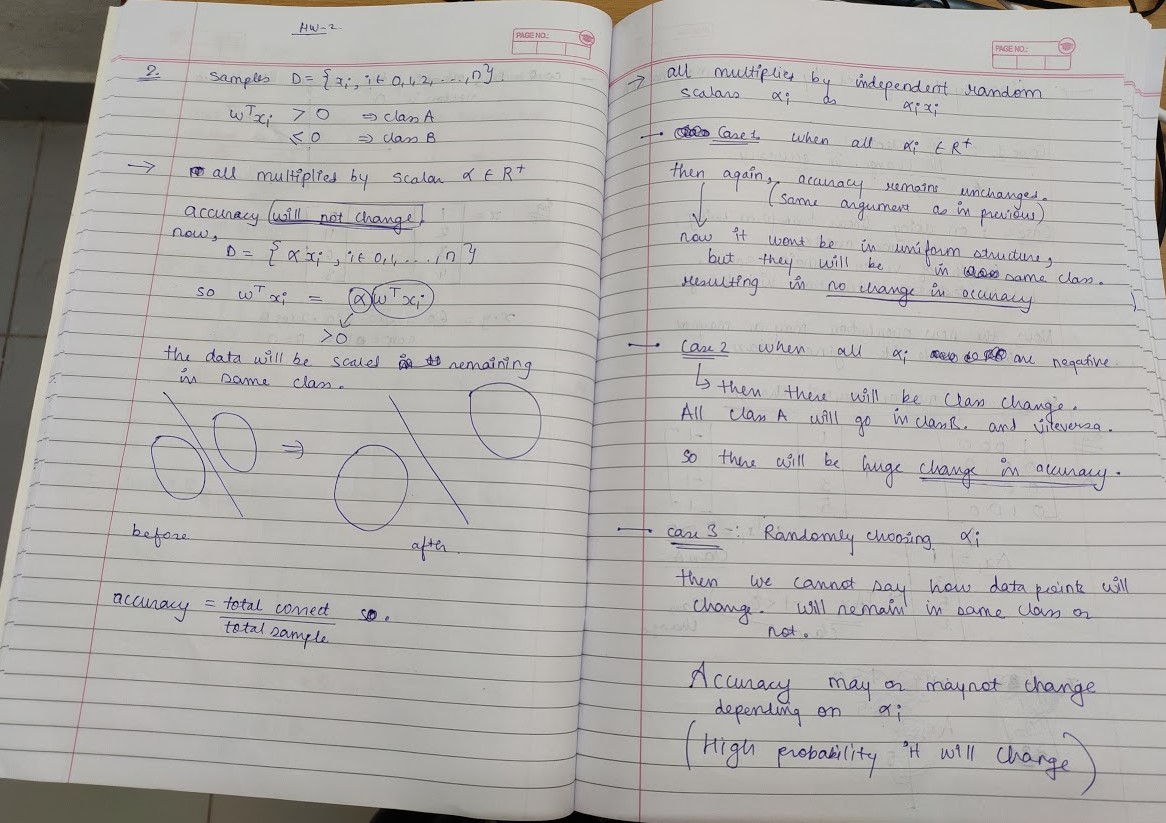 HW-2
PAGE NO.:
2. Samples D = { xi, i ∈ 0,1,2, ...., n }
wᵀxi > 0 ⇒ class A
≤ 0 ⇒ class B
→ all multiplies by scalar α ∈ R⁺
accuracy will not change.
now,
D = { αxi, i ∈ 0,1, ...., n }
so wᵀxi = α wᵀxi
>0
the data will be scaled remaining
in same class.
⇒
before
after.
accuracy = total correct / total sample so.
PAGE NO.:
→ all multiplies by independent random
scalars αi as αixi
— Case 1 when all αi ∈ R⁺
then again, accuracy remains unchanged.
(same argument as in previous)
now it wont be in uniform structure,
but they will be in same class.
resulting in no change in accuracy
— Case 2 when all αi are negative.
↳ then there will be class change.
All class A will go in class B. and viceversa.
so there will be huge change in accuracy.
— case 3 -: Randomly choosing αi
then we cannot say how data points will
change. will remain in same class or
not.
Accuracy may or maynot change
depending on αi
(High probability it will change)